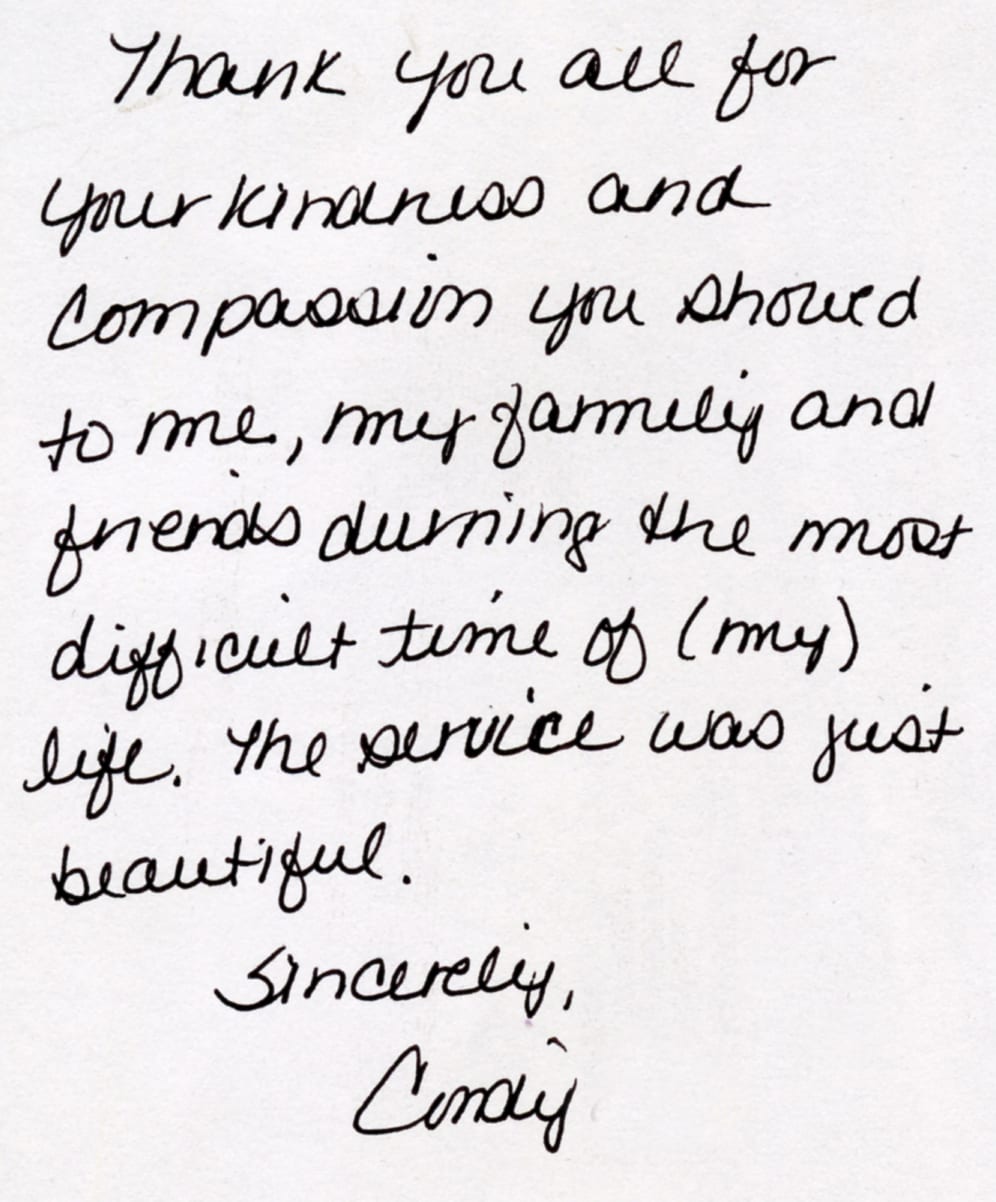 Thank you all for
your kindness and
Compassion you showed
to me, my family and
friends durning the most
difficult time of (my)
life. The service was just
beautiful.
Sincerely,
Cindy